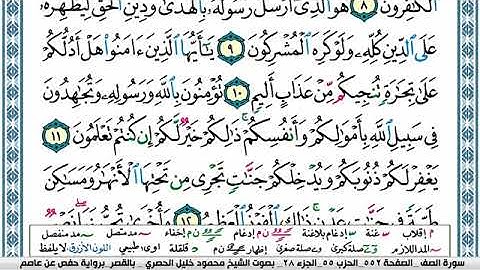 ٱلۡكَٰفِرُونَ ٨ هُوَ ٱلَّذِيٓ أَرۡسَلَ رَسُولَهُۥ بِٱلۡهُدَىٰ وَدِينِ ٱلۡحَقِّ لِيُظۡهِرَهُۥ
عَلَى ٱلدِّينِ كُلِّهِۦ وَلَوۡ كَرِهَ ٱلۡمُشۡرِكُونَ ٩ يَٰٓأَيُّهَا ٱلَّذِينَ ءَامَنُواْ هَلۡ أَدُلُّكُمۡ
عَلَىٰ تِجَٰرَةٖ تُنجِيكُم مِّنۡ عَذَابٍ أَلِيمٖ ١٠ تُؤۡمِنُونَ بِٱللَّهِ وَرَسُولِهِۦ وَتُجَٰهِدُونَ
فِي سَبِيلِ ٱللَّهِ بِأَمۡوَٰلِكُمۡ وَأَنفُسِكُمۡۚ ذَٰلِكُمۡ خَيۡرٞ لَّكُمۡ إِن كُنتُمۡ تَعۡلَمُونَ ١١
يَغۡفِرۡ لَكُمۡ ذُنُوبَكُمۡ وَيُدۡخِلۡكُمۡ جَنَّٰتٖ تَجۡرِي مِن تَحۡتِهَا ٱلۡأَنۡهَٰرُ وَمَسَٰكِنَ
طَيِّبَةٗ فِي جَنَّٰتِ عَدۡنٖۚ ذَٰلِكَ ٱلۡفَوۡزُ ٱلۡعَظِيمُ ١٢ وَأُخۡرَىٰ تُحِبُّونَهَاۖ نَصۡرٞ
م إقلاب غنة إدغام بلاغنة إدغام إخفاء مد متصل مد منفصل
مد اللازم صلة كبرى صلة صغرى إظهار قلقلة اوى، طبيعي اللون الأزرق لا يلفظ
سورة الصف _ الصفحة ٥٥٢_ الحزب ٥٥_ الجزء ٢٨ _ بصوت الشيخ محمود خليل الحصري _ بالقصر_ برواية حفص عن عاصم